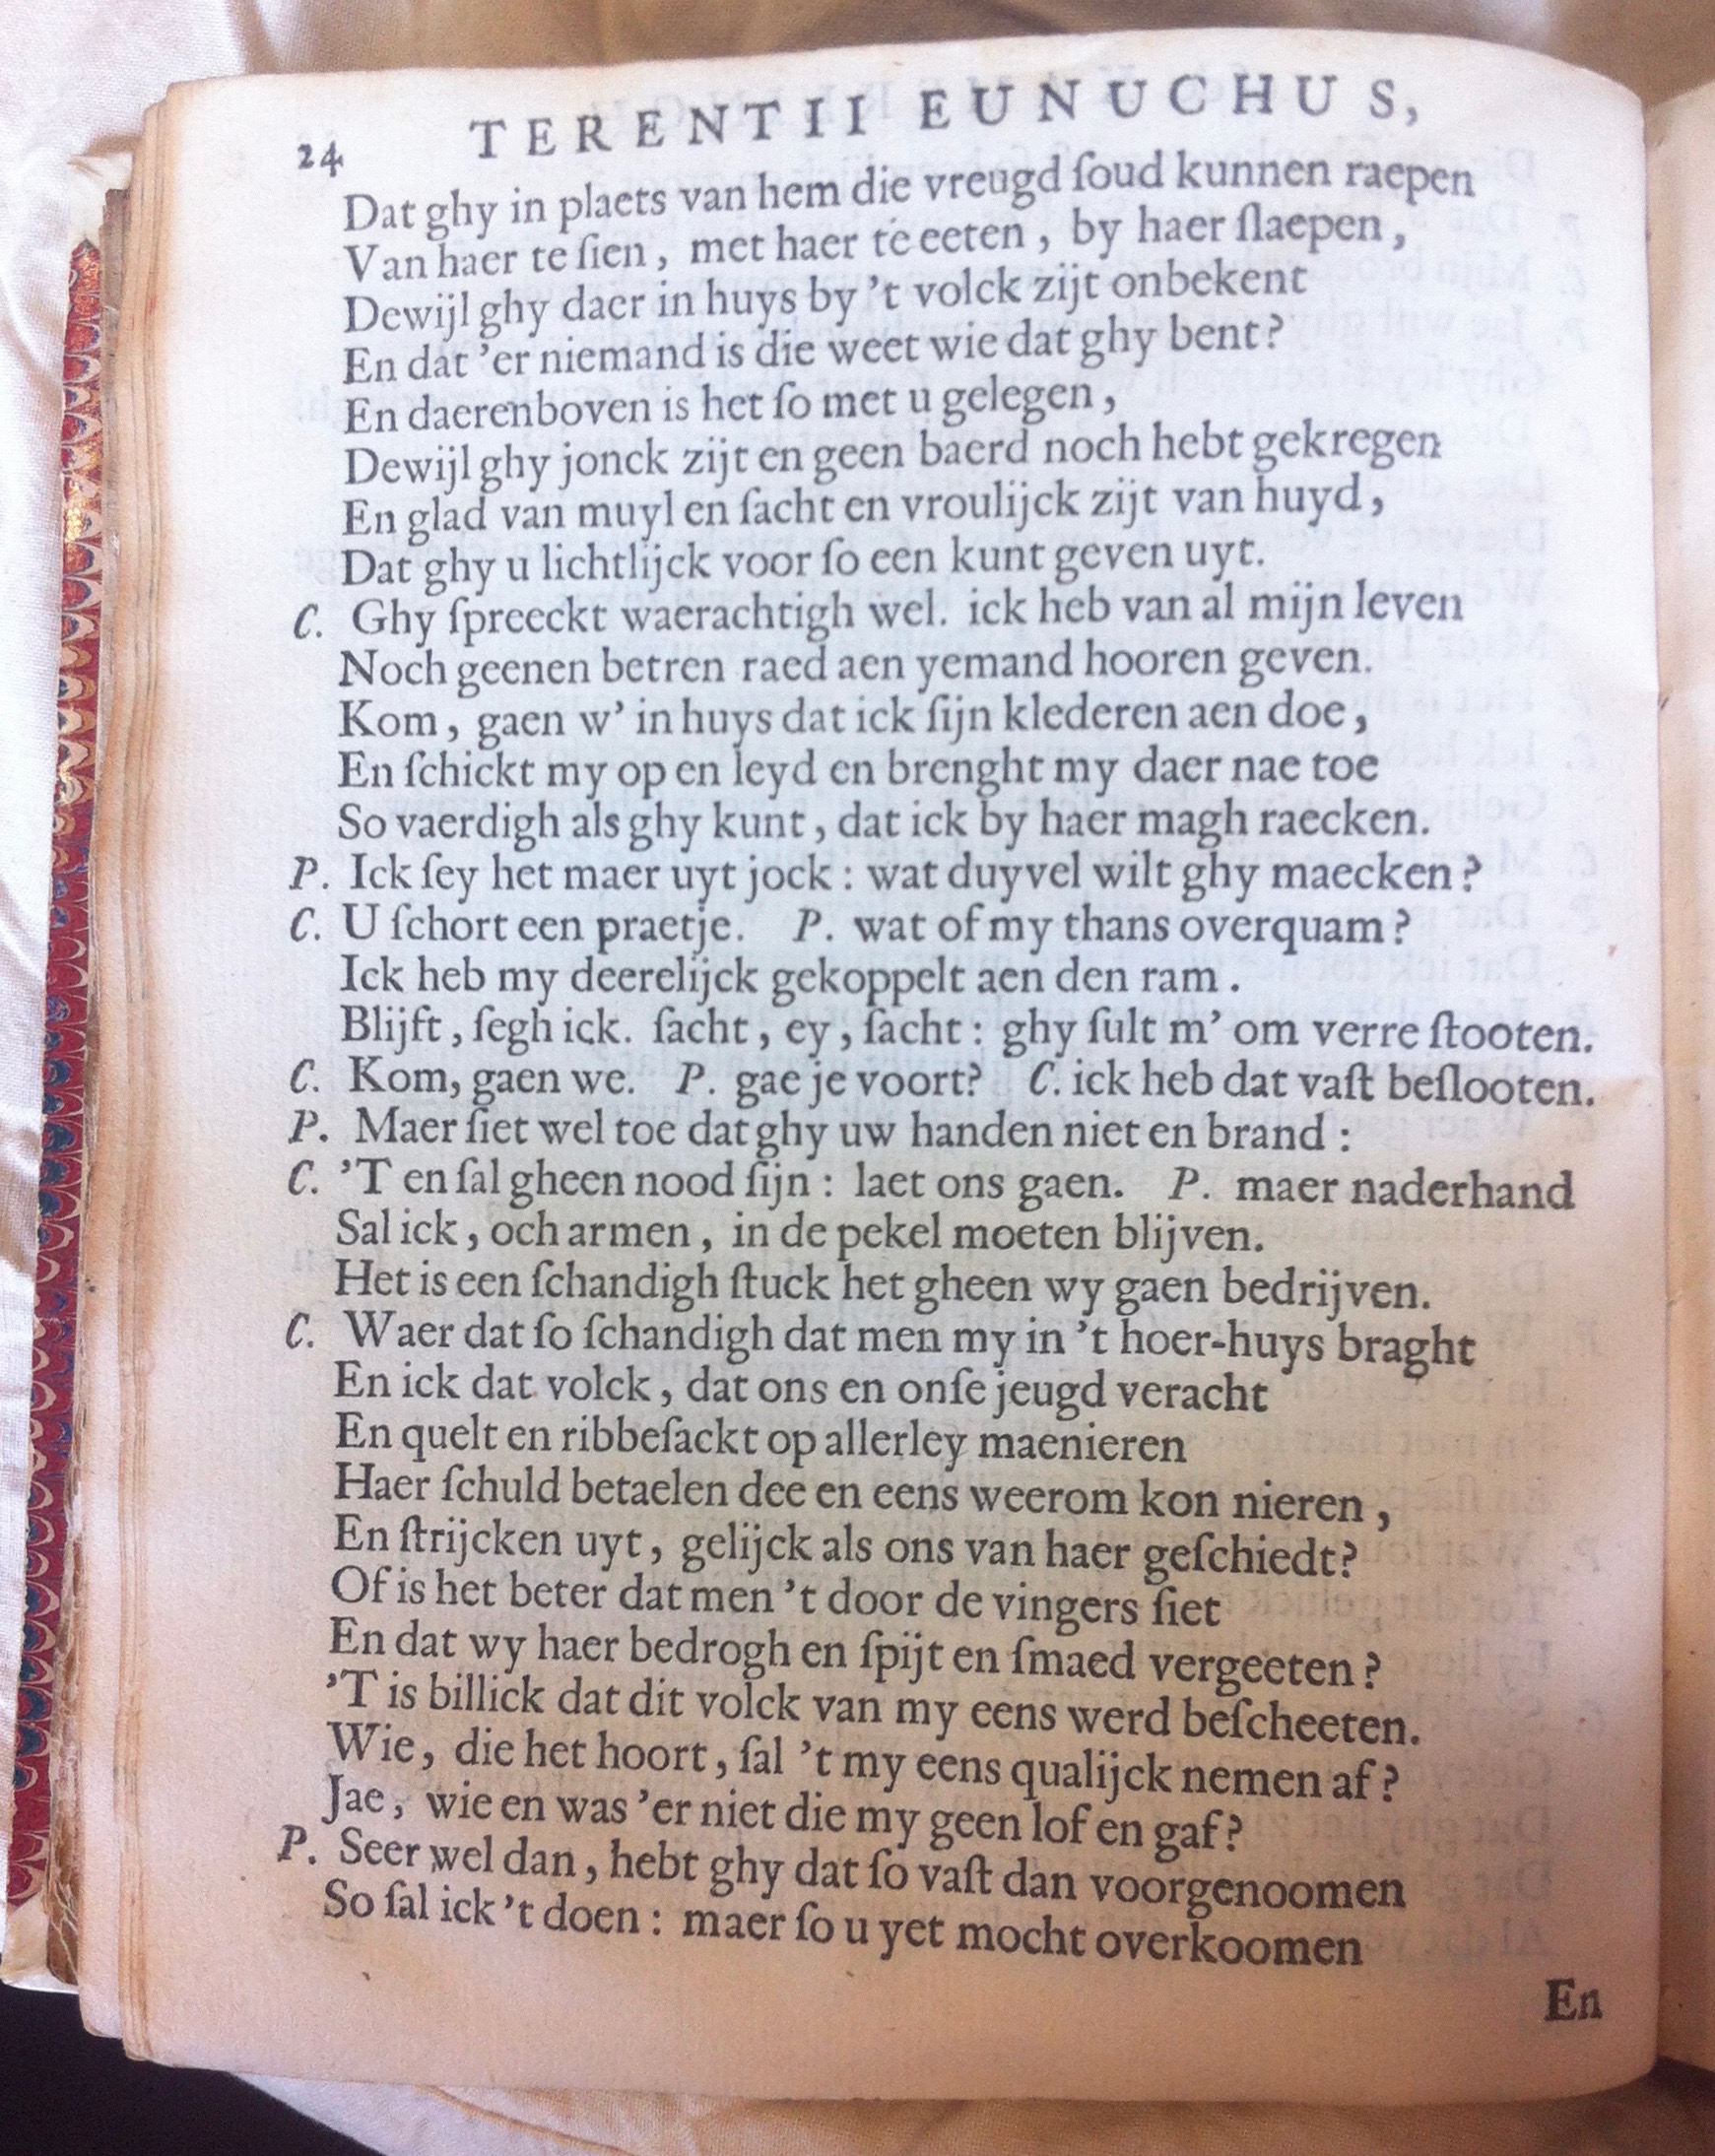 24 TERENTII EUNUCHUS,
Dat ghy in plaets van hem die vreugd ſoud kunnen raepen
Van haer te ſien, met haer te eeten, by haer ſlaepen,
Dewijl ghy daer in huys by 't volck zijt onbekent
En dat 'er niemand is die weet wie dat ghy bent?
En daerenboven is het ſo met u gelegen,
Dewijl ghy jonck zijt en geen baerd noch hebt gekregen
En glad van muyl en ſacht en vroulijck zijt van huyd,
Dat ghy u lichtlijck voor ſo een kunt geven uyt.
C. Ghy ſpreeckt waerachtigh wel. ick heb van al mijn leven
Noch geenen betren raed aen yemand hooren geven.
Kom, gaen w' in huys dat ick ſijn klederen aen doe,
En ſchickt my op en leyd en brenght my daer nae toe
So vaerdigh als ghy kunt, dat ick by haer magh raecken.
P. Ick ſey het maer uyt jock: wat duyvel wilt ghy maecken?
C. U ſchort een praetje. P. wat of my thans overquam?
Ick heb my deerelijck gekoppelt aen den ram.
Blijft, ſegh ick. ſacht, ey, ſacht: ghy ſult m' om verre ſtooten.
C. Kom, gaen we. P. gae je voort? C. ick heb dat vaſt beſlooten.
P. Maer ſiet wel toe dat ghy uw handen niet en brand:
C. 'T en ſal gheen nood ſijn: laet ons gaen. P. maer naderhand
Sal ick, och armen, in de pekel moeten blijven.
Het is een ſchandigh ſtuck het gheen wy gaen bedrijven.
C. Waer dat ſo ſchandigh dat men my in 't hoer-huys braght
En ick dat volck, dat ons en onſe jeugd veracht
En quelt en ribbeſackt op allerley maenieren
Haer ſchuld betaelen dee en eens weerom kon nieren,
En ſtrijcken uyt, gelijck als ons van haer geſchiedt?
Of is het beter dat men 't door de vingers ſiet
En dat wy haer bedrogh en ſpijt en ſmaed vergeeten?
'T is billick dat dit volck van my eens werd beſcheeten.
Wie, die het hoort, ſal 't my eens qualijck nemen af?
Jae, wie en was 'er niet die my geen lof en gaf?
P. Seer wel dan, hebt ghy dat ſo vaſt dan voorgenoomen
So ſal ick 't doen: maer ſo u yet mocht overkoomen
En